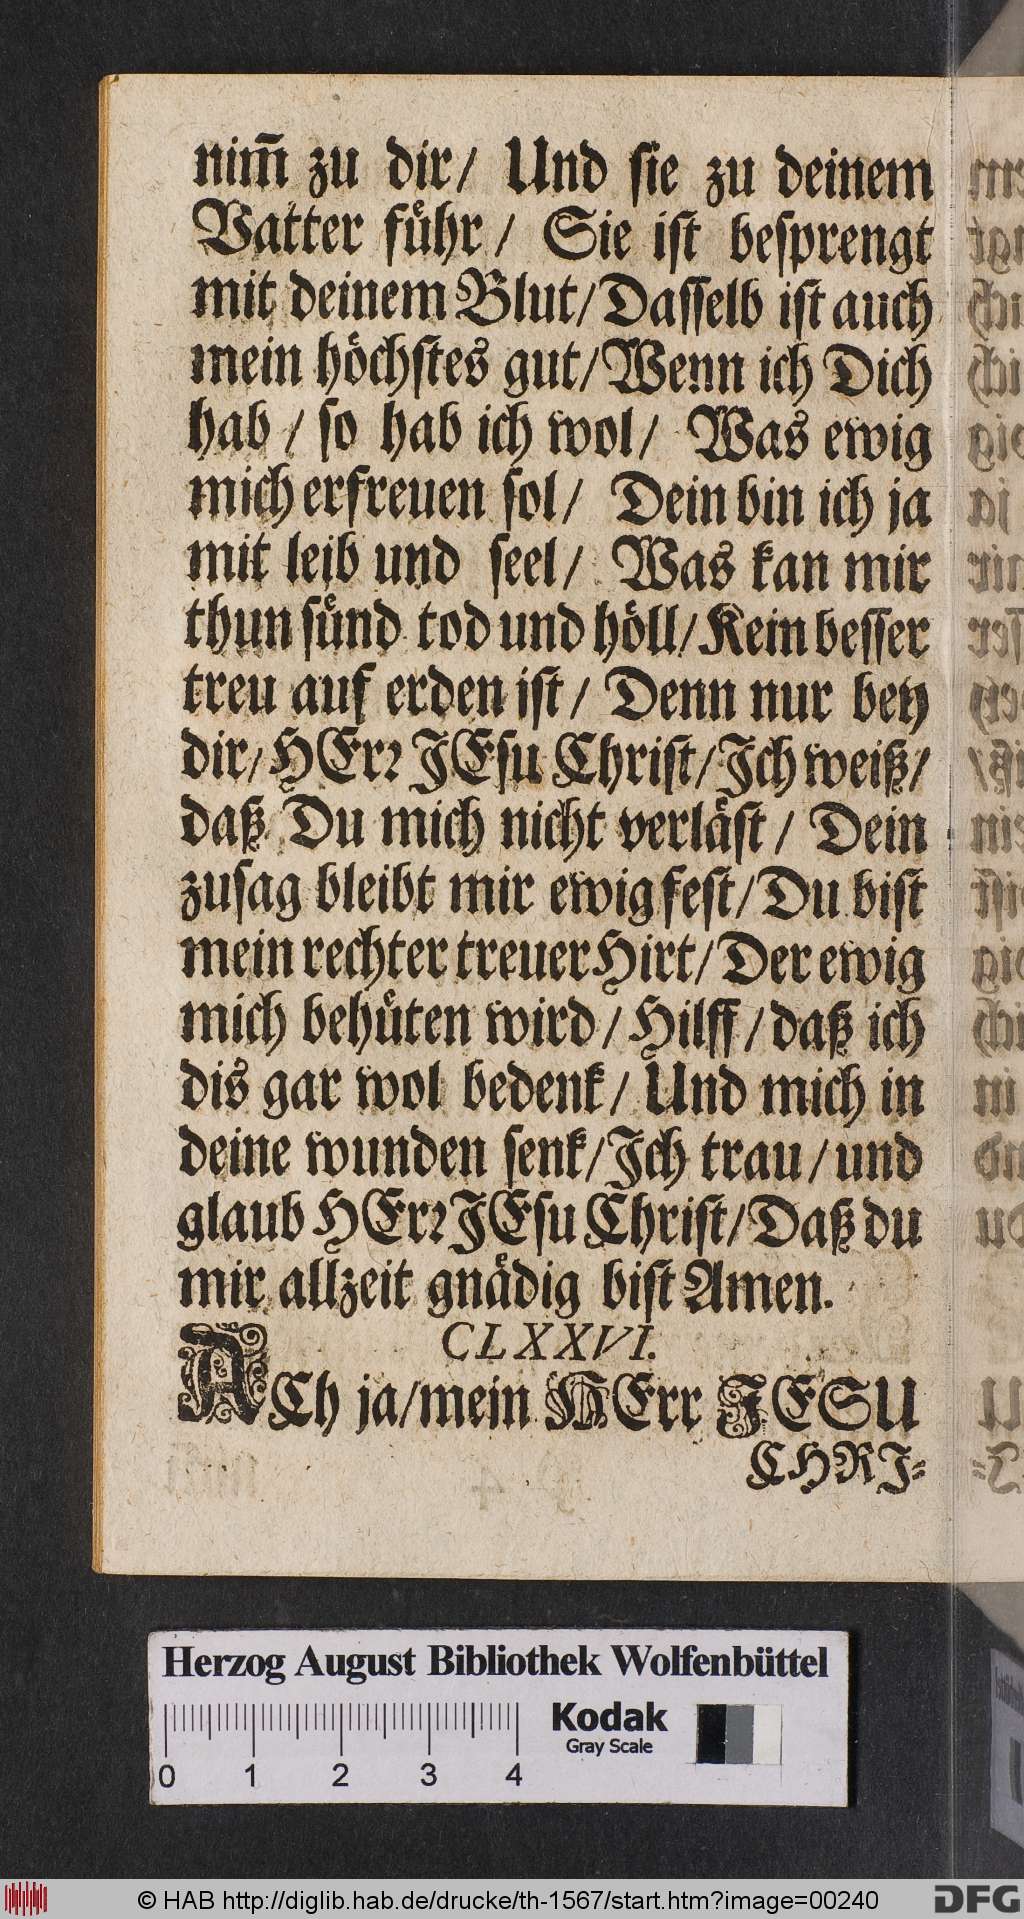 nim̃ zu dir/ Und sie zu deinem
Vatter fuͤhr/ Sie ist besprengt
mit deinem Blut/ Dasselb ist auch
mein höchstes gut/ Wenn ich Dich
hab / so hab ich wol/ Was ewig
mich erfreuen sol/ Dein bin ich ja
mit leib und seel/ Was kan mir
thun suͤnd tod und höll/ Kein besser
treu auf erden ist/ Denn nur bey
dir/ HErꝛ JEsu Christ/ Jch weiß/
daß Du mich nicht verläst/ Dein
zusag bleibt mir ewig fest/ Du bist
mein rechter treuer Hirt/ Der ewig
mich behuͤten wird/ Hilff/ daß ich
dis gar wol bedenk/ Und mich in
deine wunden senk/ Jch trau/ und
glaub HErꝛ JEsu Christ/ Daß du
mir allzeit gnaͤdig bist Amen.
CLXXVI.
ACh ja/ mein HErr JESU
CHRJ-
Herzog August Bibliothek Wolfenbüttel
0 1 2 3 4
Kodak
Gray Scale
© HAB http://diglib.hab.de/drucke/th-1567/start.htm?image=00240
DFG